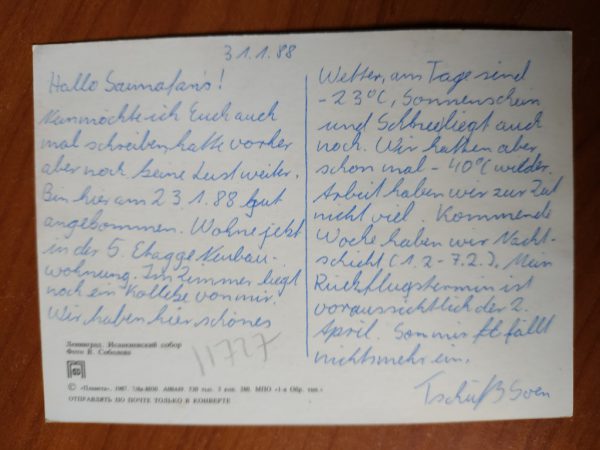 31.1.88
Hallo Saunafan's!
Nun möchte ich Euch auch
mal schreiben, hatte vorher
aber noch keine Lust weiter.
Bin hier am 23.1.88 gut
angekommen. Wohne jetzt
in der 5. Etagge Neubau-
wohnung. Im Zimmer liegt
noch ein Kollege von mir.
Wir haben hier schönes
Wetter, am Tage sind
-23°C, Sonnenschein
und Schnee liegt auch
noch. Wir hatten aber
schon mal -40°C
Arbeit haben wir zur Zeit
nicht viel. Kommende
Woche haben wir Nacht-
schicht (1.2-7.2.). Mein
Rückflugstermin ist
voraussichtlich der 2.
April. So mir fällt
nichts mehr ein.
Tschüß Sven
11727
Ленинград. Исаакиевский собор
Фото К. Соболева
© «Планета», 1987.
ОТПРАВЛЯТЬ ПО ПОЧТЕ ТОЛЬКО В КОНВЕРТЕ